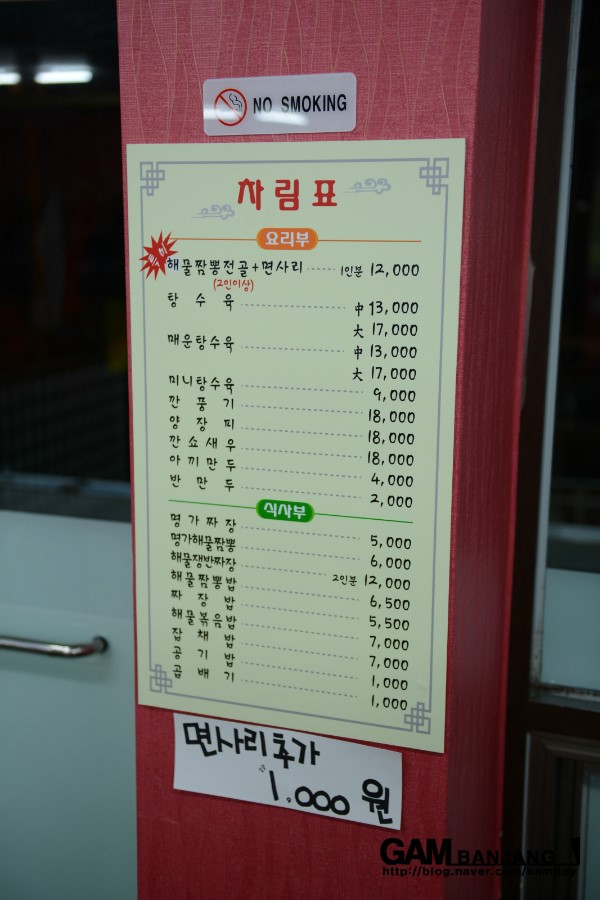 NO SMOKING
차림표
요리부
해물짬뽕전골+면사리 1인분 12,000
(2인이상)
탕수육 中 13,000
大 17,000
매운탕수육 中 13,000
大 17,000
미니탕수육 9,000
깐풍기 18,000
양장피 18,000
깐쇼새우 18,000
아끼만두 4,000
반만두 2,000
식사부
명가짜장 5,000
명가해물짬뽕 6,000
해물쟁반짜장 2인분 12,000
해물짬뽕밥 6,500
짜장밥 5,500
해물볶음밥 7,000
잡채밥 7,000
공기밥 1,000
곱배기 1,000
면사리추가
1,000원
GAM BANJANG
http://blog.naver.com/